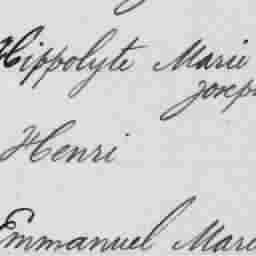 Hippolyte Marie
Joseph
Henri
Emmanuel Marie